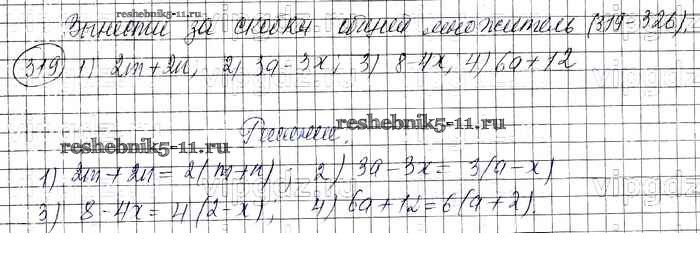 reshebnik5-11.ru
Вынести за скобки общий множитель (319-326).
319) 1) 2m+2n, 2) 3a-3x; 3) 8-4x, 4) 6a+12
Решение.
reshebnik5-11.ru
reshebnik5-11.ru
1) 2m+2n=2(m+n); 2) 3a-3x=3(a-x)
3) 8-4x=4(2-x); 4) 6a+12=6(a+2).